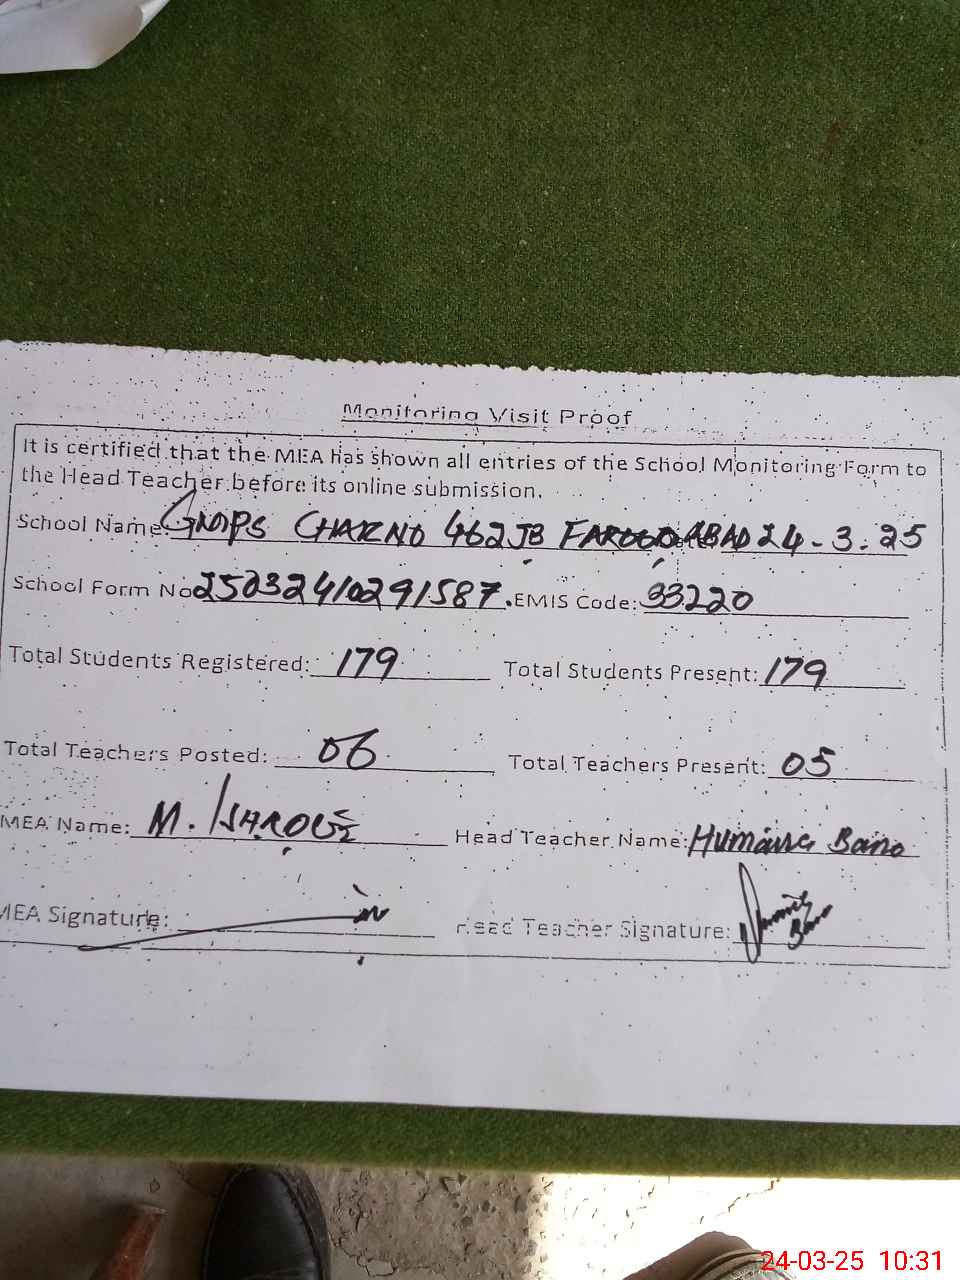 Monitoring Visit Proof
It is certified that the MEA has shown all entries of the School Monitoring Form to
the Head Teacher before its online submission.
School Name: GMPS CHAK NO 462JB FAROOQ ABAD 24-3-25
School Form No 25032410291587. EMIS Code: 33220
Total Students Registered: 179 Total Students Present: 179
Total Teachers Posted: 06 Total Teachers Present: 05
MEA Name: M. Head Teacher Name: Humaira Bano
MEA Signature: Head Teacher Signature: Humaira Bano
24-03-25 10:31